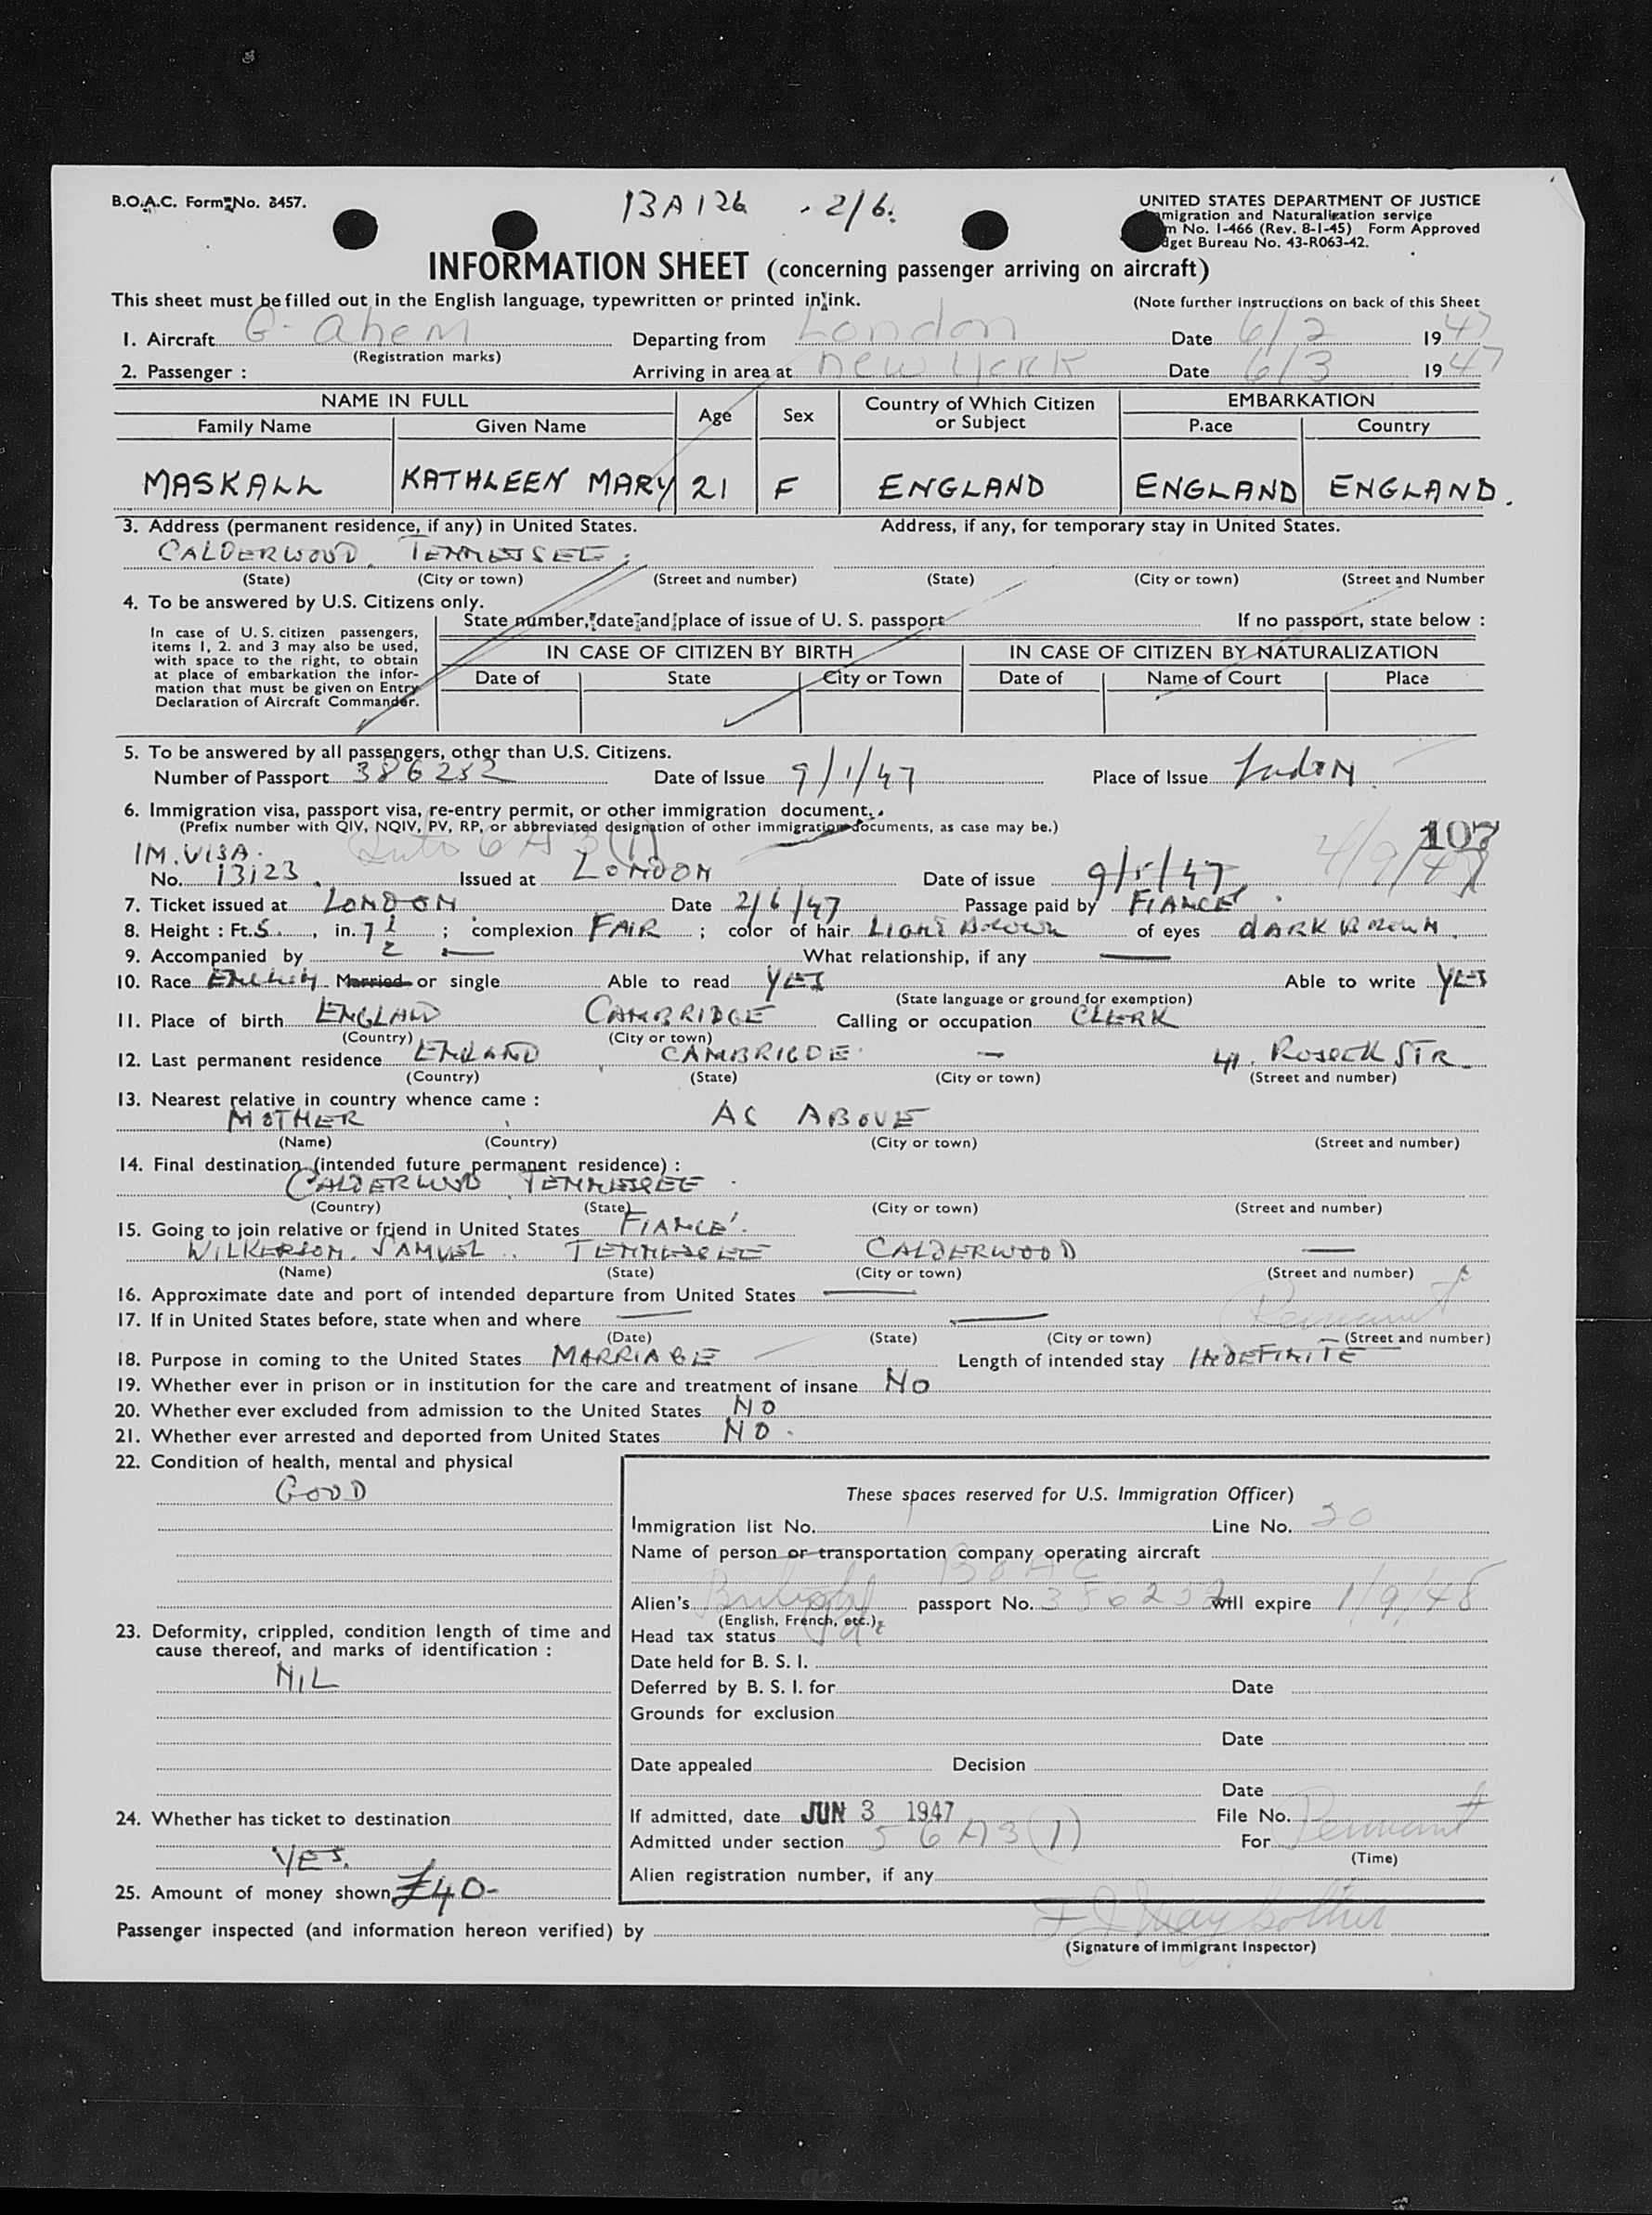 B.O.A.C. Form No. 3457.
BA126 . 2/6.
UNITED STATES DEPARTMENT OF JUSTICE
migration and Naturalization service
m No. I-466 (Rev. 8-1-45) Form Approved
dget Bureau No. 43-R063-42.
INFORMATION SHEET (concerning passenger arriving on aircraft)
This sheet must be filled out in the English language, typewritten or printed in ink. (Note further instructions on back of this Sheet
1. Aircraft G-ahem Departing from London Date 6/2 1947
(Registration marks)
2. Passenger : Arriving in area at new york Date 6/3 1947
NAME IN FULL Age Sex Country of Which Citizen or Subject EMBARKATION
Family Name Given Name P.ace Country
MASKALL KATHLEEN MARY 21 F ENGLAND ENGLAND ENGLAND.
3. Address (permanent residence, if any) in United States. Address, if any, for temporary stay in United States.
CALDERWOOD. TENNESSEE.
(State) (City or town) (Street and number) (State) (City or town) (Street and Number
4. To be answered by U.S. Citizens only.
State number, date and place of issue of U. S. passport If no passport, state below :
In case of U. S. citizen passengers,
items 1, 2. and 3 may also be used,
with space to the right, to obtain
at place of embarkation the infor-
mation that must be given on Entry
Declaration of Aircraft Commander.
IN CASE OF CITIZEN BY BIRTH IN CASE OF CITIZEN BY NATURALIZATION
Date of State City or Town Date of Name of Court Place
5. To be answered by all passengers, other than U.S. Citizens.
Number of Passport 386252 Date of Issue 9/1/47 Place of Issue London
6. Immigration visa, passport visa, re-entry permit, or other immigration document.
(Prefix number with QIV, NQIV, PV, RP, or abbreviated designation of other immigration documents, as case may be.)
107
IM. VISA. 6 A 3 (1) 4/9/47
No. 13123. Issued at LONDON Date of issue 9/5/47
7. Ticket issued at LONDON Date 2/6/47 Passage paid by FIANCE
8. Height : Ft. 5. , in. 7 1/2 ; complexion FAIR ; color of hair LIGHT BROWN of eyes DARK BROWN
9. Accompanied by — What relationship, if any —
10. Race ENGLISH Married or single Able to read YES Able to write YES
(State language or ground for exemption)
11. Place of birth ENGLAND CAMBRIDGE Calling or occupation CLERK
(Country) (City or town)
12. Last permanent residence ENGLAND CAMBRIGDE — 41. STR
(Country) (State) (City or town) (Street and number)
13. Nearest relative in country whence came :
MOTHER AS ABOVE
(Name) (Country) (City or town) (Street and number)
14. Final destination (intended future permanent residence) :
CALDERWOOD TENNESSEE
(Country) (State) (City or town) (Street and number)
15. Going to join relative or friend in United States FIANCE'.
WILKERSON. SAMUEL .. TENNESSEE CALDERWOOD —
(Name) (State) (City or town) (Street and number)
16. Approximate date and port of intended departure from United States —
17. If in United States before, state when and where — —
Permanent
(Date) (State) (City or town) (Street and number)
18. Purpose in coming to the United States MARRIAGE Length of intended stay INDEFINITE
19. Whether ever in prison or in institution for the care and treatment of insane NO
20. Whether ever excluded from admission to the United States NO
21. Whether ever arrested and deported from United States NO.
22. Condition of health, mental and physical
GOOD
23. Deformity, crippled, condition length of time and
cause thereof, and marks of identification :
NIL
24. Whether has ticket to destination
YES.
25. Amount of money shown £40-
These spaces reserved for U.S. Immigration Officer)
Immigration list No. 1 Line No. 20
Name of person or transportation company operating aircraft
BOAC
Alien's British passport No. 386252 will expire 1/9/48
(English, French, etc.)
Head tax status pd
Date held for B. S. I.
Deferred by B. S. I. for Date
Grounds for exclusion
Date
Date appealed Decision
Date
If admitted, date JUN 3 1947 File No.
Admitted under section 5 6 A 3 (1) For Permanent
(Time)
Alien registration number, if any
Passenger inspected (and information hereon verified) by
(Signature of Immigrant Inspector)